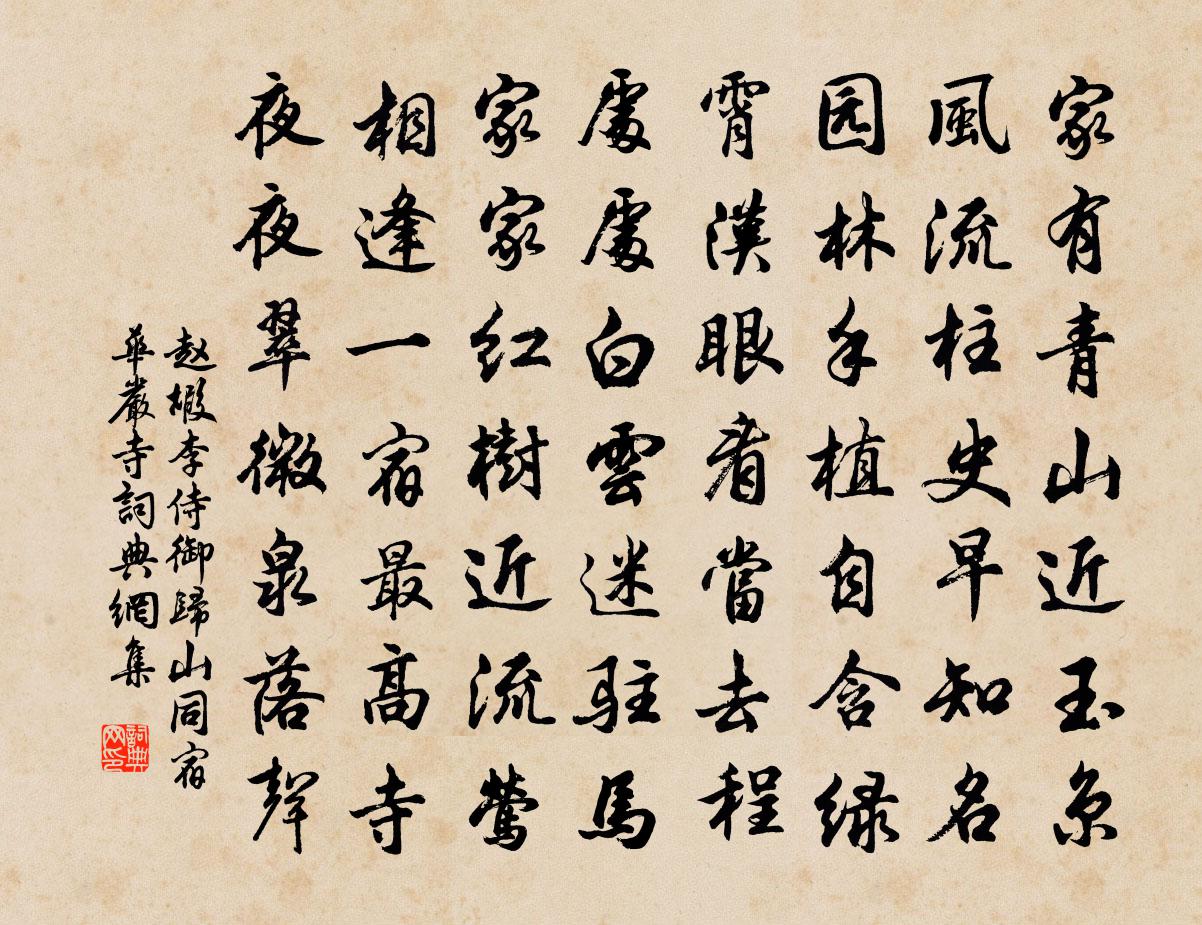 家有青山近玉京
風流柱史早知名
园林手植自含緑
霄漢眼看當去程
處處白雲迷駐馬
家家紅樹近流鶯
相逢一宿最高寺
夜夜翠微泉落聲
赵嘏李侍御歸山同宿
華嚴寺詞典網集
詞典
网印